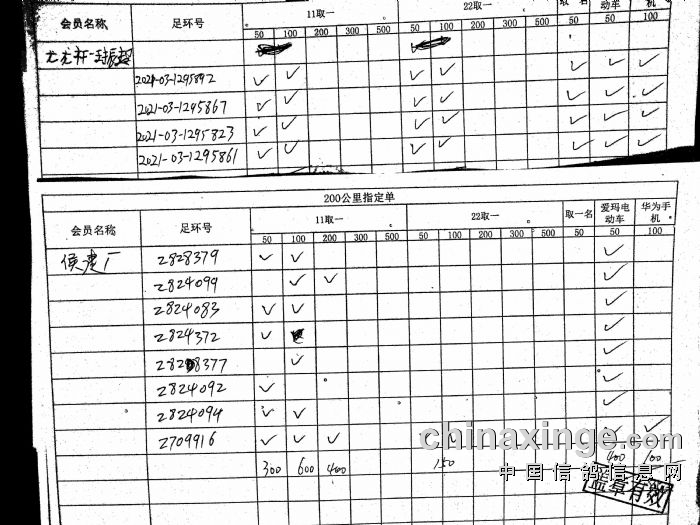 会员名称 足环号 11取一 22取一 取一名 动车 机
50 100 200 300 500 50 100 200 300 500 50 50 100
2021-03-1295892 ✓ ✓ ✓ ✓ ✓ ✓ ✓
2021-03-1295867 ✓ ✓ ✓ ✓ ✓ ✓ ✓
2021-03-1295823 ✓ ✓ ✓ ✓ ✓ ✓ ✓
2021-03-1295861 ✓ ✓ ✓ ✓ ✓ ✓ ✓
200公里指定单
会员名称 足环号 11取一 22取一 取一名 爱玛电动车 华为手机
50 100 200 300 500 50 100 200 300 500 50 50 100
侯建厂 2828379 ✓ ✓ ✓
2824099 ✓ ✓ ✓
2824083 ✓ ✓ ✓
2824372 ✓ ✓
2828377 ✓ ✓
2824092 ✓ ✓
2824094 ✓ ✓ ✓
2709916 ✓ ✓ ✓ ✓ ✓ ✓
300 600 400 150 400 100
chinaxinge.com
中国信鸽信息网
盖章有效